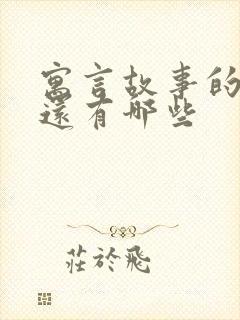 寓言故事的
還有哪些
莊於飛